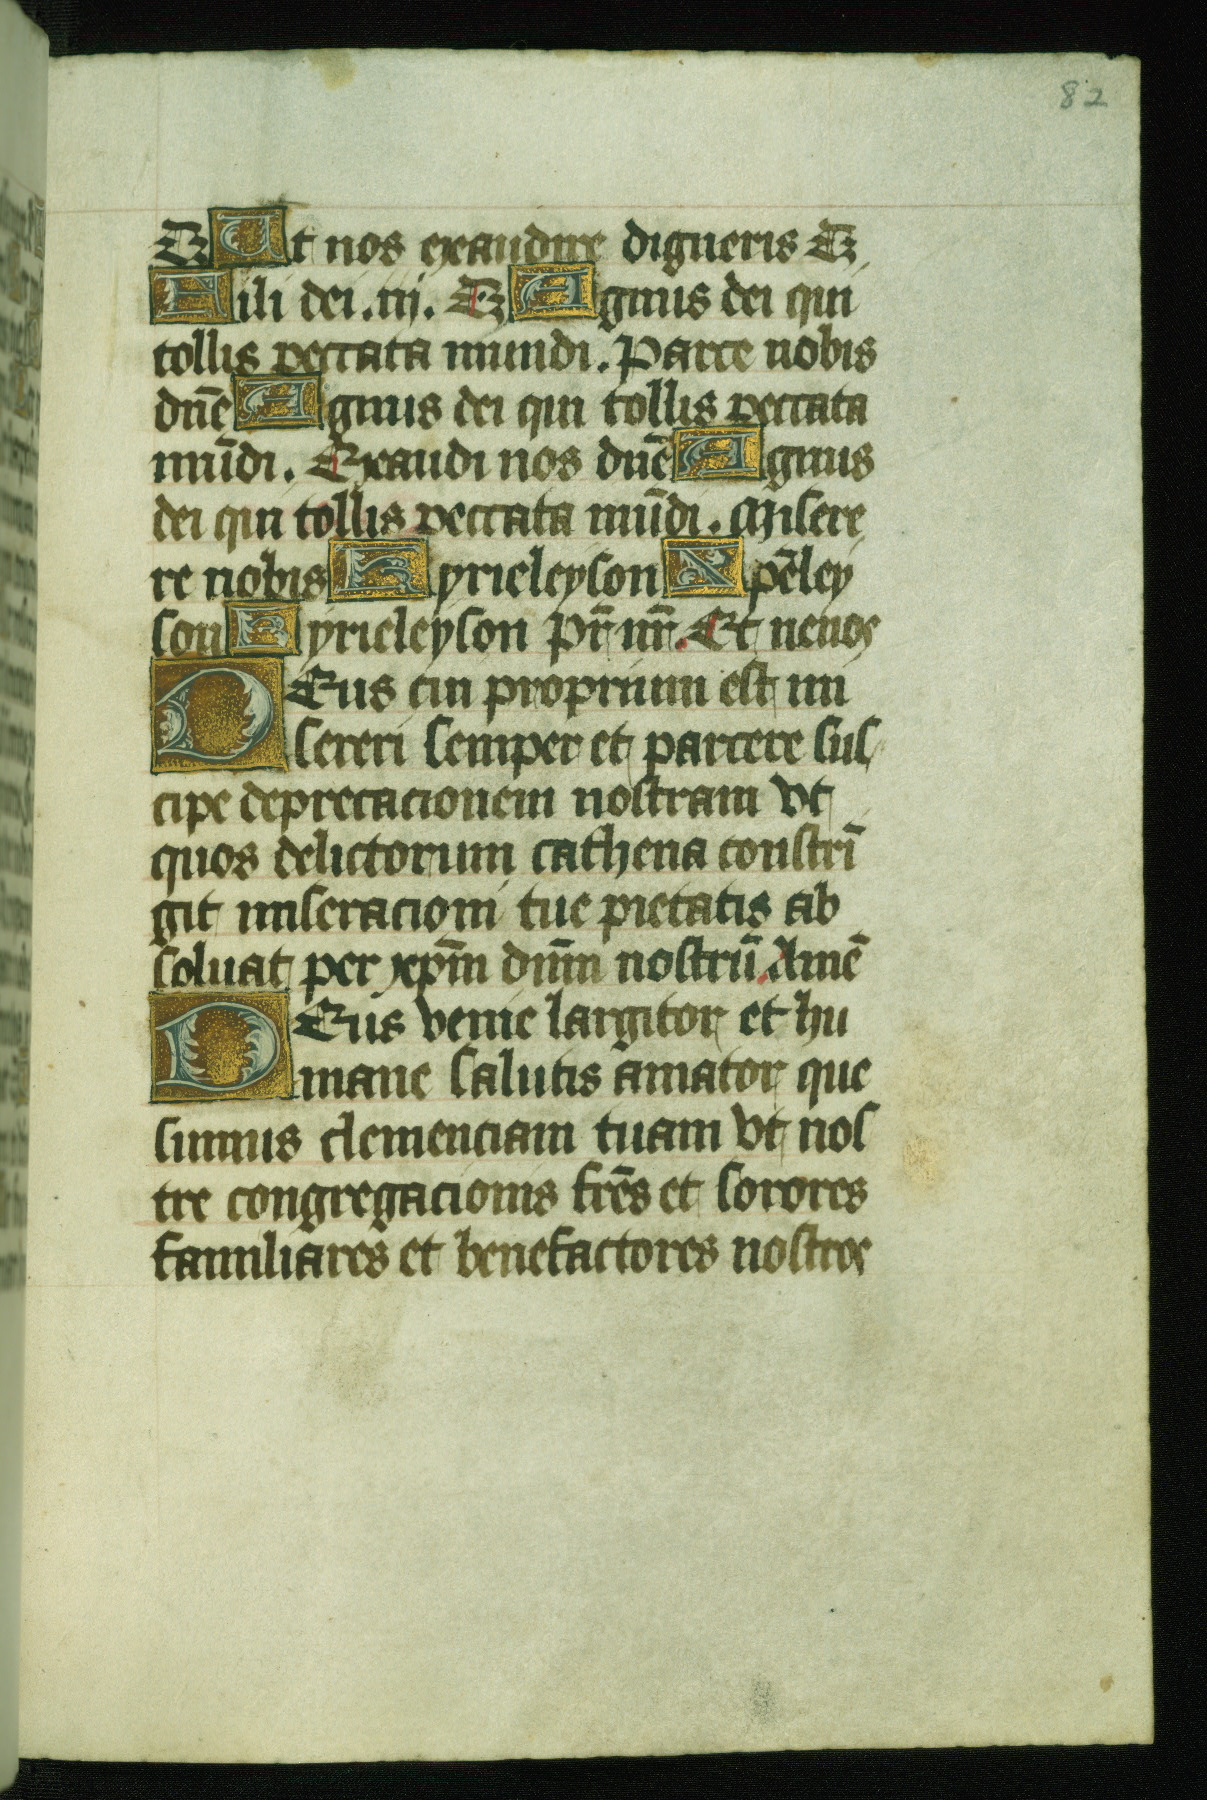 82
T Ut nos exaudire digneris T
Fili dei .iij. T Agnus dei qui
tollis peccata mundi. Parce nobis
dn̄e Agnus dei qui tollis peccata
mūdi. Exaudi nos dn̄e Agnus
dei qui tollis peccata mūdi. Misere
re nobis Kyrieleyson Xp̄eley
son Kyrieleyson Pr̄ nr̄. Et ne nos
DEus cui proprium est mi
sereri semper et parcere sus
cipe deprecacionem nostram vt
quos delictorum cathena constrī
git miseracioni tue pietatis ab
soluat per xp̄m dn̄m nostrū Amē
DEus venie largitor et hu
mane salutis amator que
sumus clemenciam tuam vt nos
tre congregacionis fr̄es et sorores
familiares et benefactores nostros